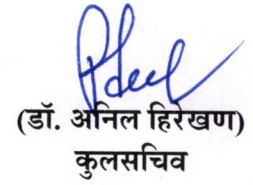 (डॉ. अनिल हिरेखण)
कुलसचिव